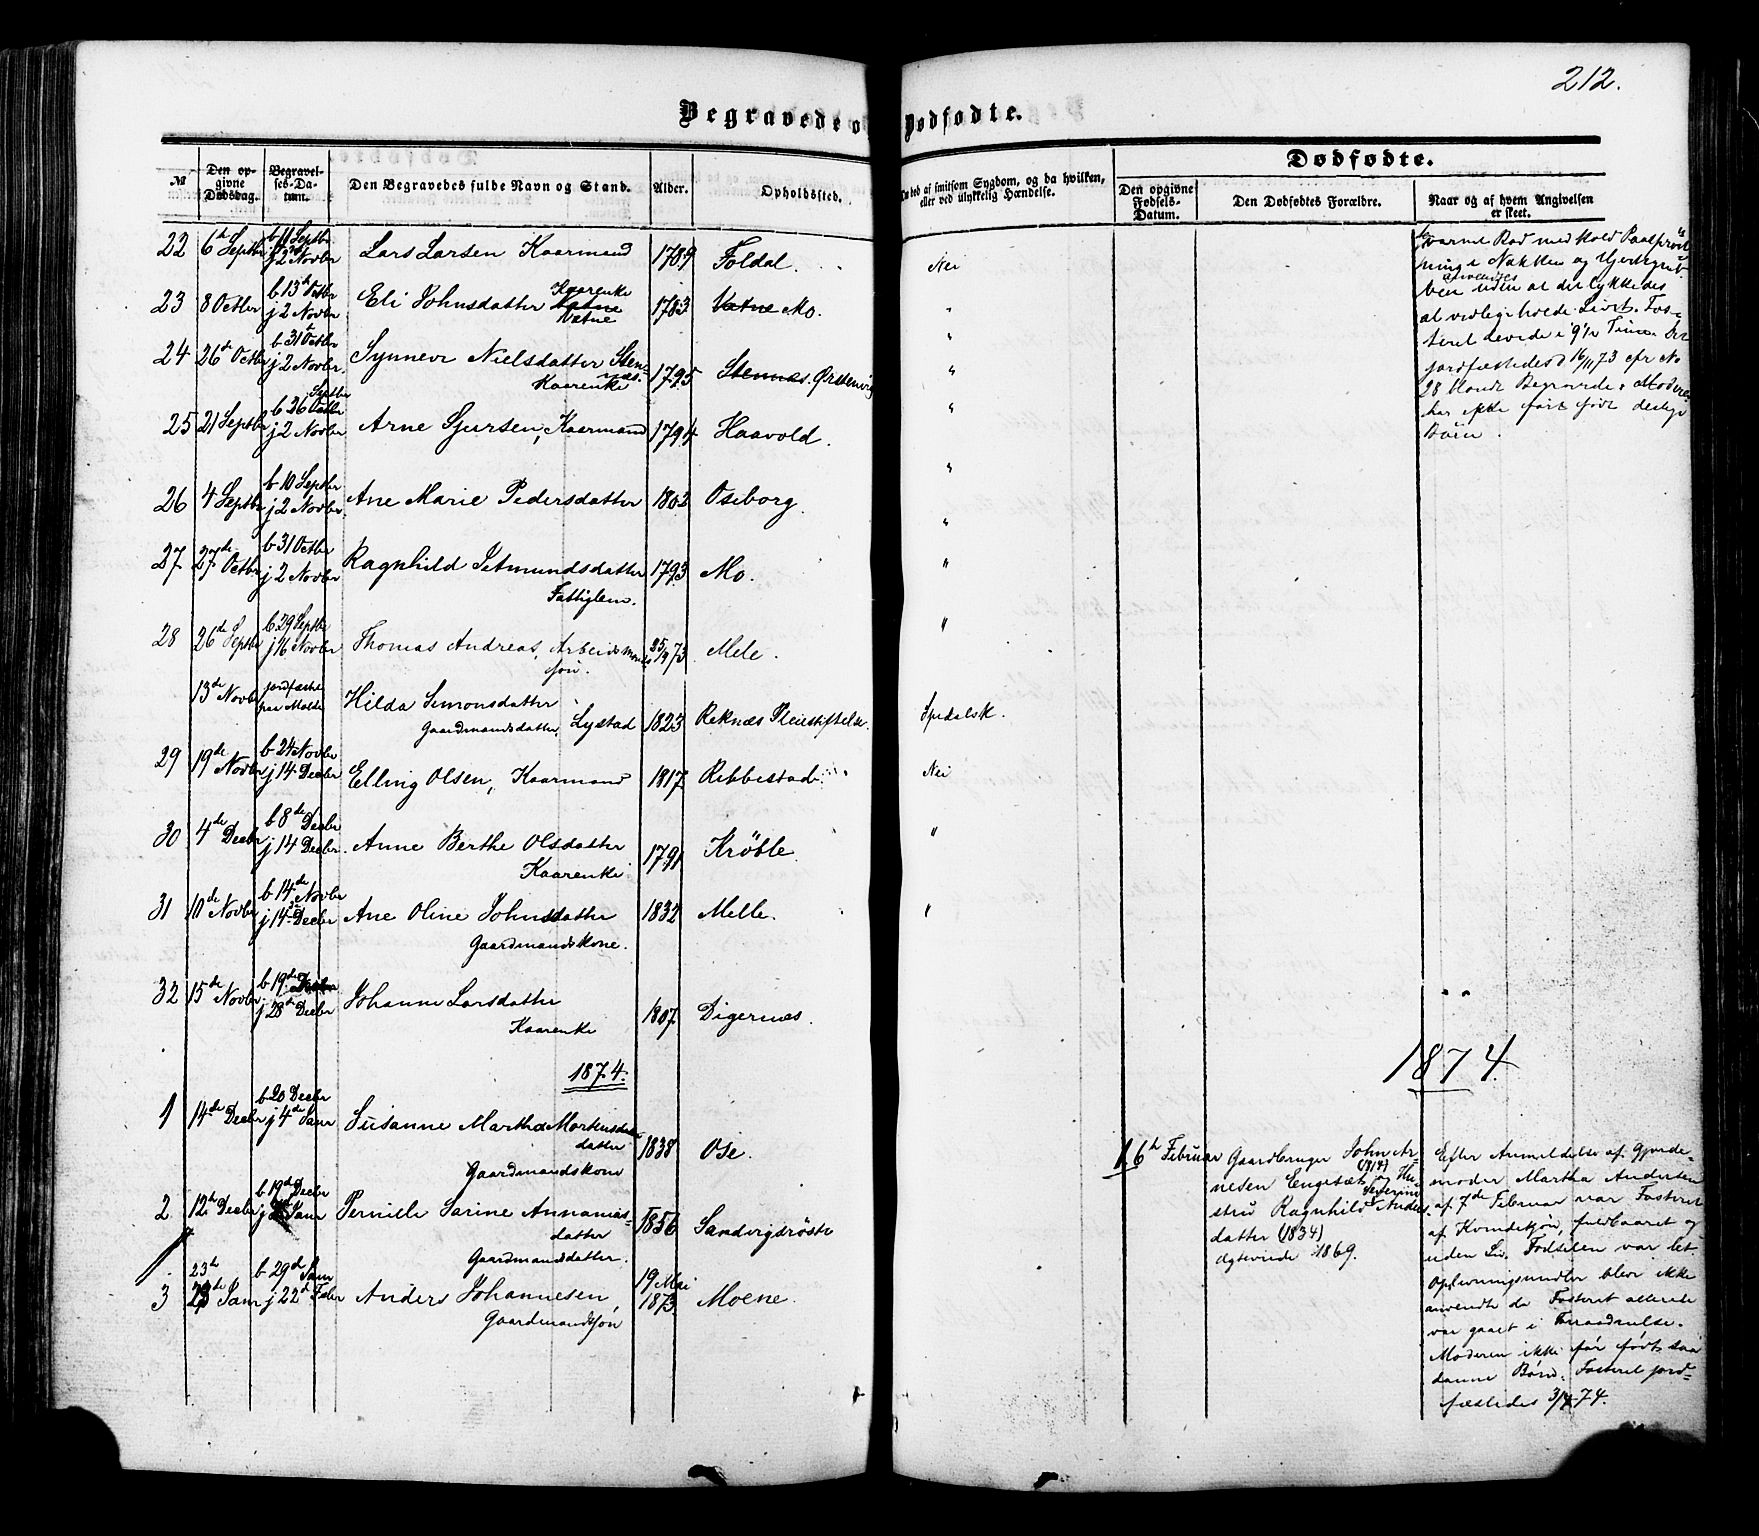 212.
Begravede o
Dødfødte.
№
Den opgivne Dødsdag.
Begravelses-Datum.
Den Begravedes fulde Navn og Stand.
Alder.
Opholdssted.
ved af smitsom Sygdom, og da hvilken, eller ved ulykkelig Hændelse.
Dødfødte.
Den opgivne Fødsels-Datum.
Den Dødfødtes Forældre.
Naar og af hvem Angivelsen er skeet.
22 6te Septbr b 11 Septbr j 2 Novbr Lars Larsen Kaarmand 1789 Foldal. Nei
23 8 Octbr b 13de Octbr j 2 Novbr Eli Johnsdatter Kaarenke Vatne 1783 Vatne Mo. "
24 26de Octbr b 31 Octbr j 2 Novbr. Synneve Nielsdatter Stennæs. Kaarenke 1795 Stennæs. Ørstenvig "
25 21 Septbr b 26 Octbr Septbr j 2 Novbr Arne Sjursen, Kaarmand 1794 Haavold. "
26 4 Septbr b 10 Septbr j 2 Novbr. Ane Marie Pedersdatter 1802 Oseborg. "
27 27de Octbr b 31 Octbr j 2 Novbr Ragnhild Setmundsdatter Fattiglem. 1793 Mo. "
28 26de Septbr b 29 Septbr j 16 Novbr Thomas Andreas, Arbeidsmands søn. 25/9 73 Mele. "
13de Novbr jordfæstet paa Molde Hilda Simonsdatter Gaardmandsdatter, Lystad 1823 Reknæs Pleiestiftelse. Spedalsk.
29 19de Novbr b 24 Novbr j 14 Decbr Elling Olsen, Kaarmand 1817 Ribbestad. Nei
30 4de Decbr b 8de Decbr j 14 Decbr. Anne Berthe Olsdatter Kaarenke 1791 Krøvle. "
31 10de Novbr b 14de Novbr j 14de Decbr Ane Oline Johnsdatter Gaardmandskone. 1832 Melle. "
32 15de Novbr b 19de j 28de Decbr Johanne Larsdatter Kaarenke 1807 Digernæs.
1874.
1 14de Decbr b 20 Decbr j 4de Janr Susanne Martha Mortensdatter Gaardmandskone 1838 Ose.
2 12te Decbr b 19de Decbr j Janr Pernille Sarine Annaniasdatter Gaardmandsdatter. 1856 Sandvigsrøste
3 23de Janr b 29de Janr j 22de Febr Anders Johannesen, Gaardmandssøn 19 Mai 1873 Moene.
varme Bad med Kold
i Nakken og Hjertegruben
anvendes uden at det lykkedes
at vedligeholde Livet. Fosteret
levede i 9½ Time. Det
jordfæstedes 16/11 73 cfr No
28 Mandk Begravede. Moderen
har ikke før født deslige
Børn.
1874.
1. 6te Februar
Gaardbruger John Arnesen (1814) Engeset og Hustru
Ragnhild Severine Andersdatter (1834)
Ægteviede 1869.
Efter Anmeldelse af Gjordemoder
Martha Andersen
af 7de Februar var Fosteret
af Kvindekjøn, fuldbaaret og
uden Liv. Fødselen var let
Oplivningsmidler blev ikke
anvendte da Fosteret allerede
var gaaet i Forraadnelse.
Moderen ikke før født saadanne
Børn. Fosteret jordfæstedes
3/4 74.